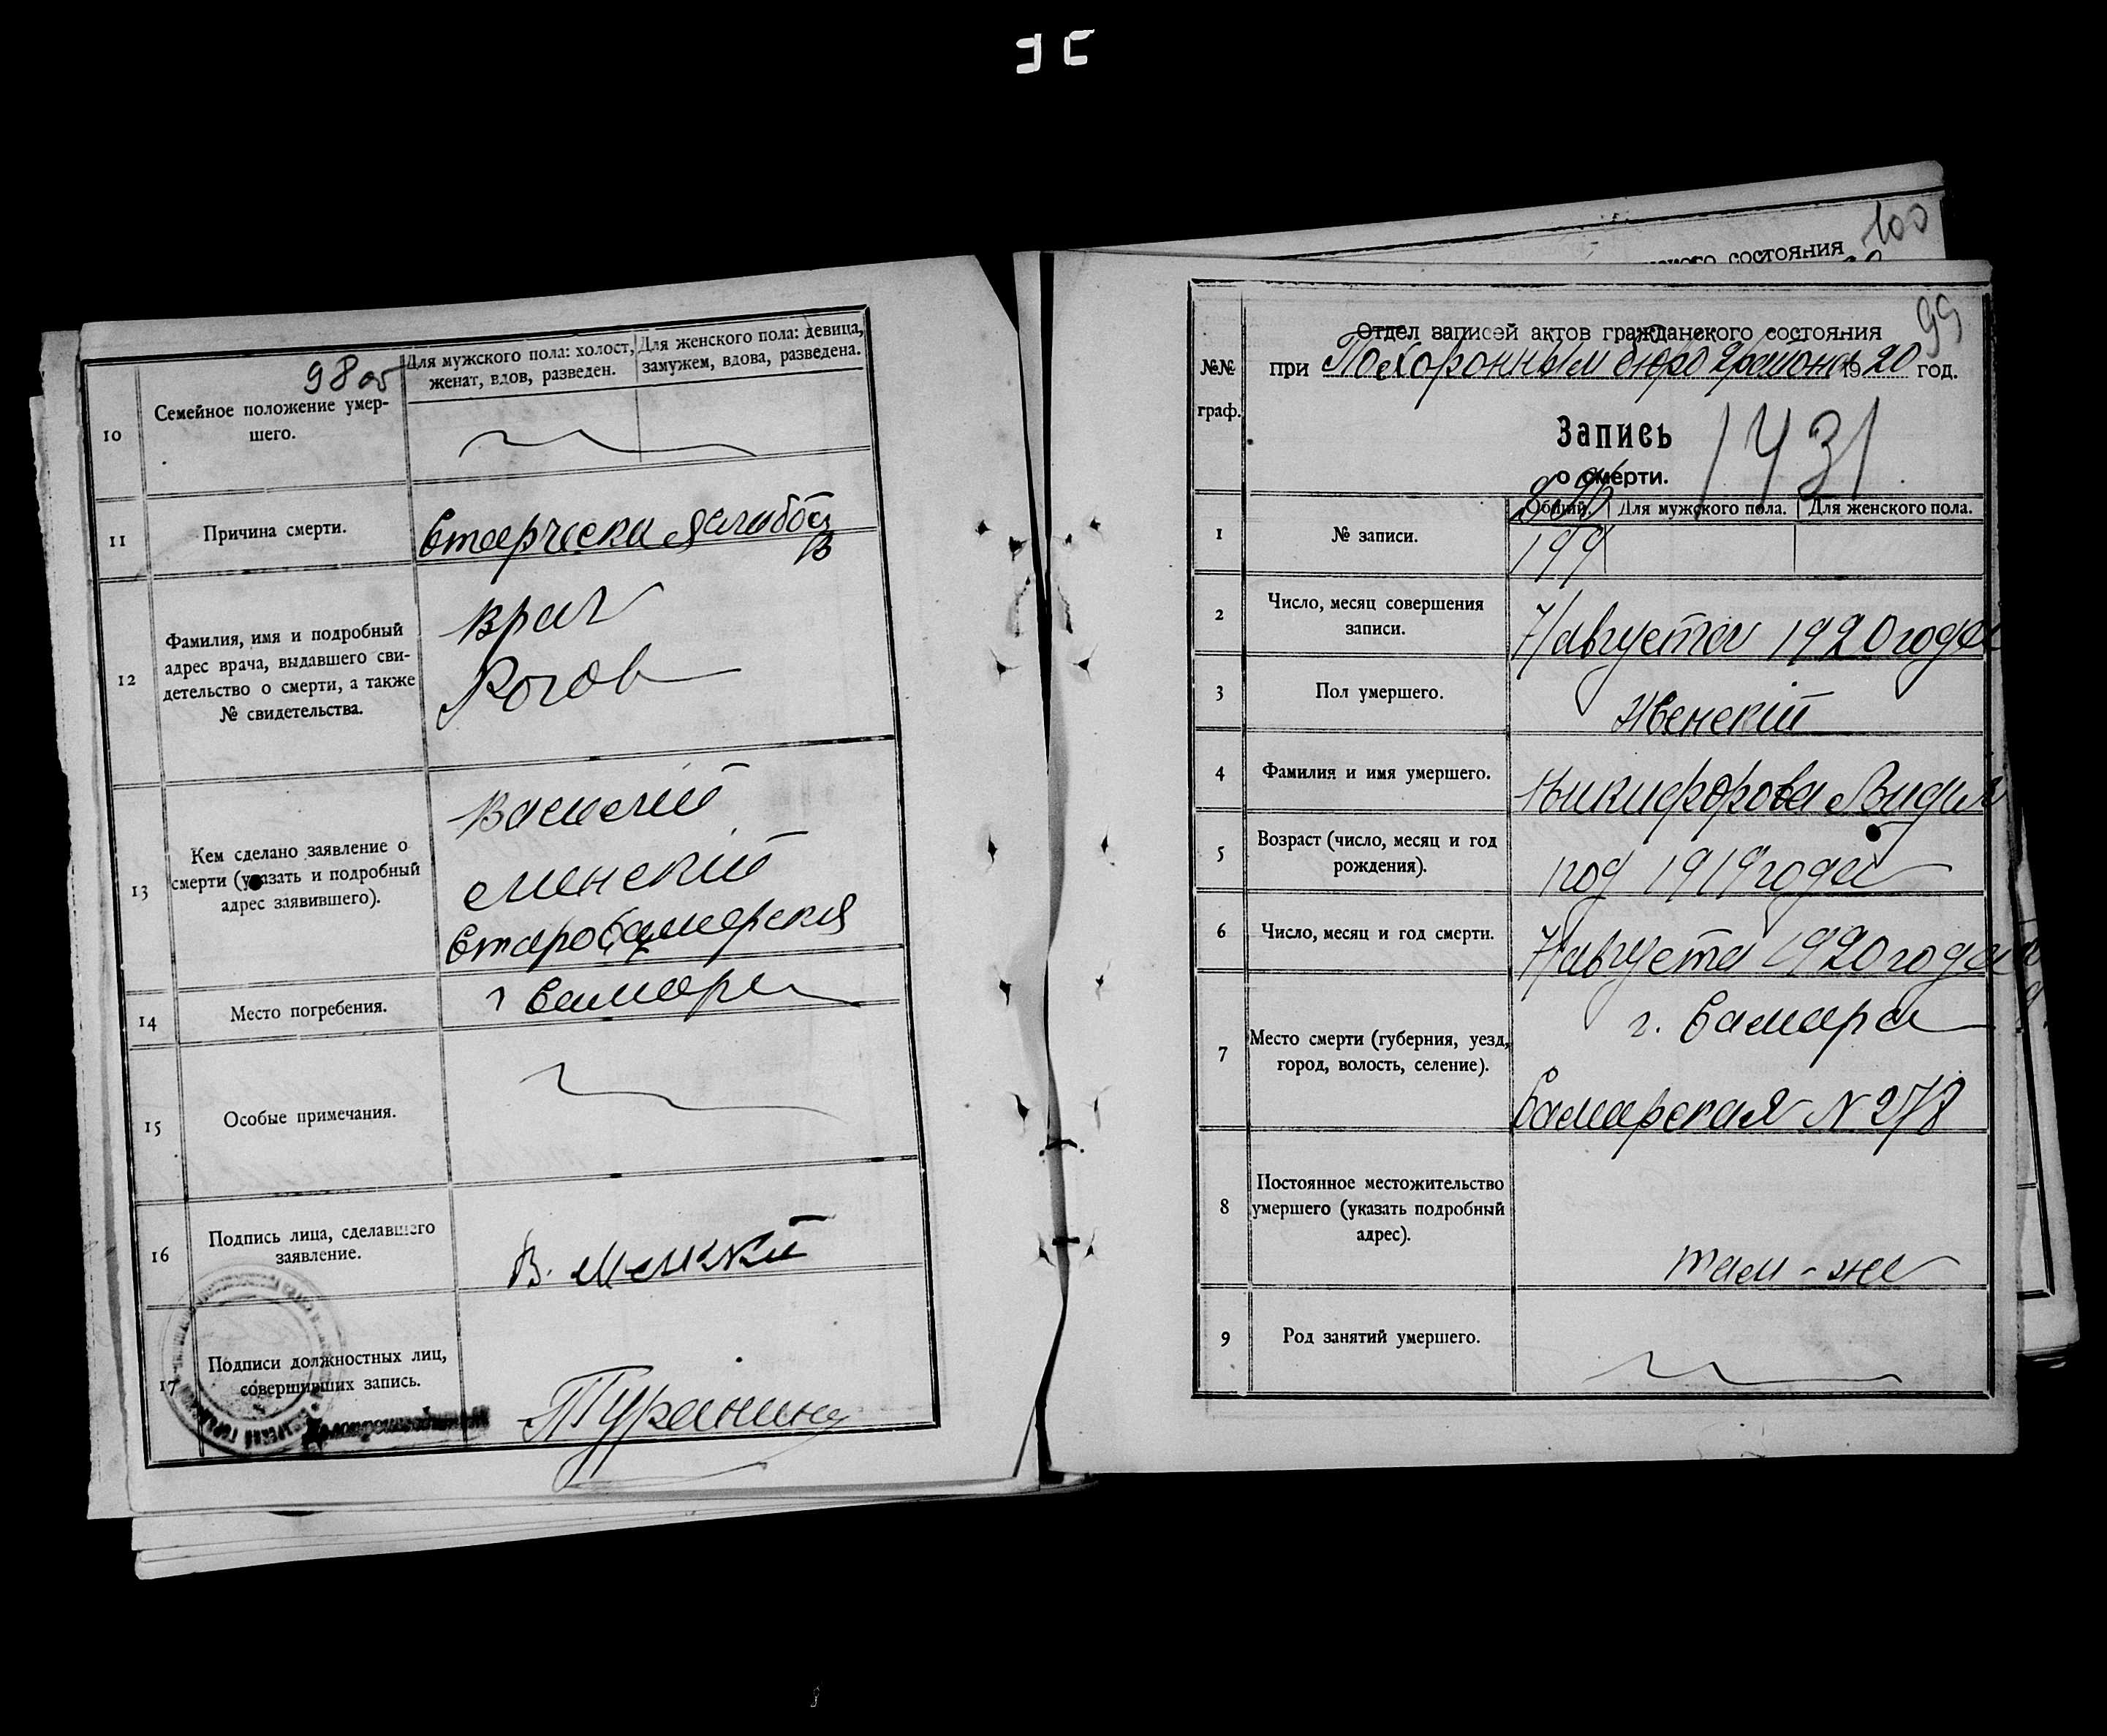 98 об
10
Семейное положение умер-
шего.
Для мужского пола: холост,
женат, вдов, разведен.
Для женского пола: девица,
замужем, вдова, разведена.
11
Причина смерти.
12
Фамилия, имя и подробный
адрес врача, выдавшего сви-
детельство о смерти, а также
№ свидетельства.
Врач
Рогов
13
Кем сделано заявление о
смерти (указать и подробный
адрес заявившего).
Василий
Менский
Старосамарская
14
Место погребения.
г Самара
15
Особые примечания.
16
Подпись лица, сделавшего
заявление.
В. Менский
17
Подписи должностных лиц,
совершивших запись.
100
состояния
99
№№
граф.
Отдел записей актов гражданского состояния
при Похоронным бюро 2 района 1920 год.
Запись
о смерти.
1431
1
№ записи.
Общий.
Для мужского пола.
Для женского пола.
199
2
Число, месяц совершения
записи.
7 августа 1920 года
3
Пол умершего.
Женский
4
Фамилия и имя умершего.
Никифорова
5
Возраст (число, месяц и год
рождения).
1 год 1919 года
6
Число, месяц и год смерти.
7 августа 1920 года
7
Место смерти (губерния, уезд,
город, волость, селение).
г. Самара
Самарская N 278
8
Постоянное местожительство
умершего (указать подробный
адрес).
там-же
9
Род занятий умершего.